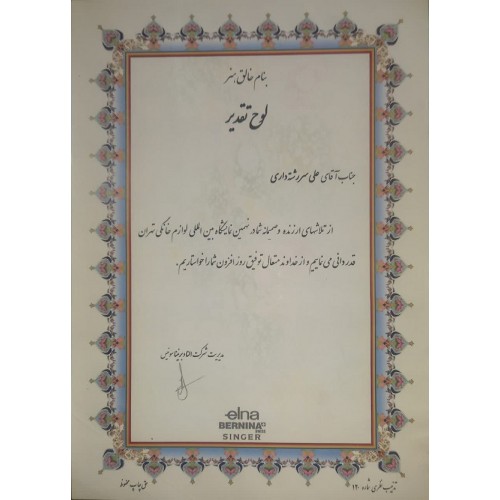 بنام خالق هنر
لوح تقدیر
جناب آقای علی سررشته داری
از تلاشهای ارزنده و صمیمانه شما در نهمین نمایشگاه بین المللی لوازم خانگی تهران
قدردانی می نماییم و از خداوند متعال توفیق روزافزون شما را خواستاریم.
مدیریت شرکت النا و برنینا سوئیس
elna
BERNINA
SINGER
تذهیب شکری شماره ۱۴۰
حق چاپ محفوظ